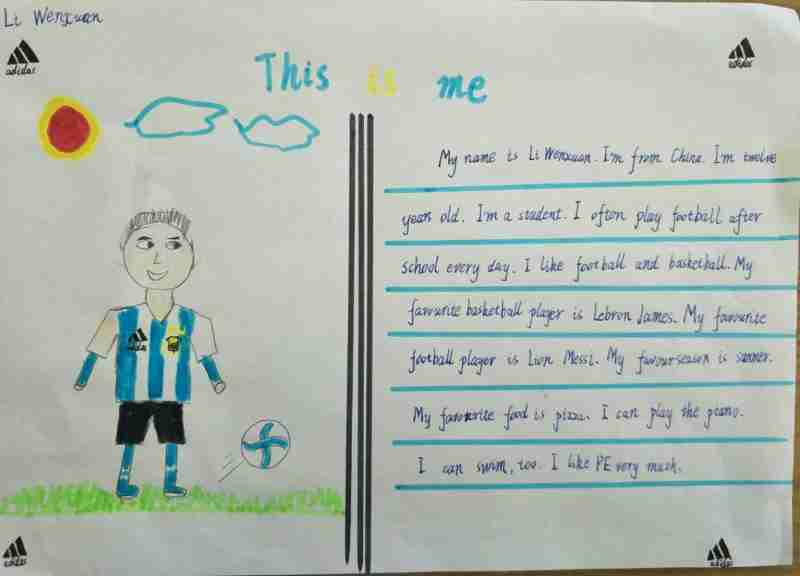 Li Wenxuan
adidas
adidas
This is me
My name is Li Wenxuan. I'm from China. I'm twelve
years old. I'm a student. I often play football after
school every day. I like football and basketball. My
favourite basketball player is Lebron James. My favourite
football player is Lion Messi. My favourseason is summer.
My favourite food is pizza. I can play the piano.
I can swim, too. I like PE very much.
adidas
adidas
adidas